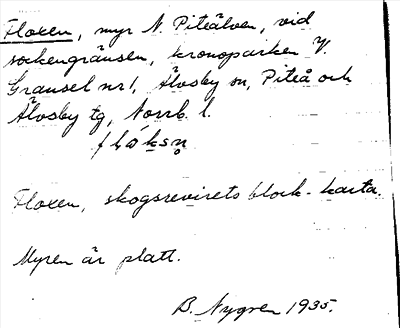 Floxen, myr N. Piteälven, vid
sockengränsen, kronoparken V.
Gransel nr 1, Älvsby sn, Piteå och
Älvsby tg, Norrb. l.
flòksn̥
Floxen, skogsrevirets block-karta.
Myren är platt.
B. Nygren 1935.